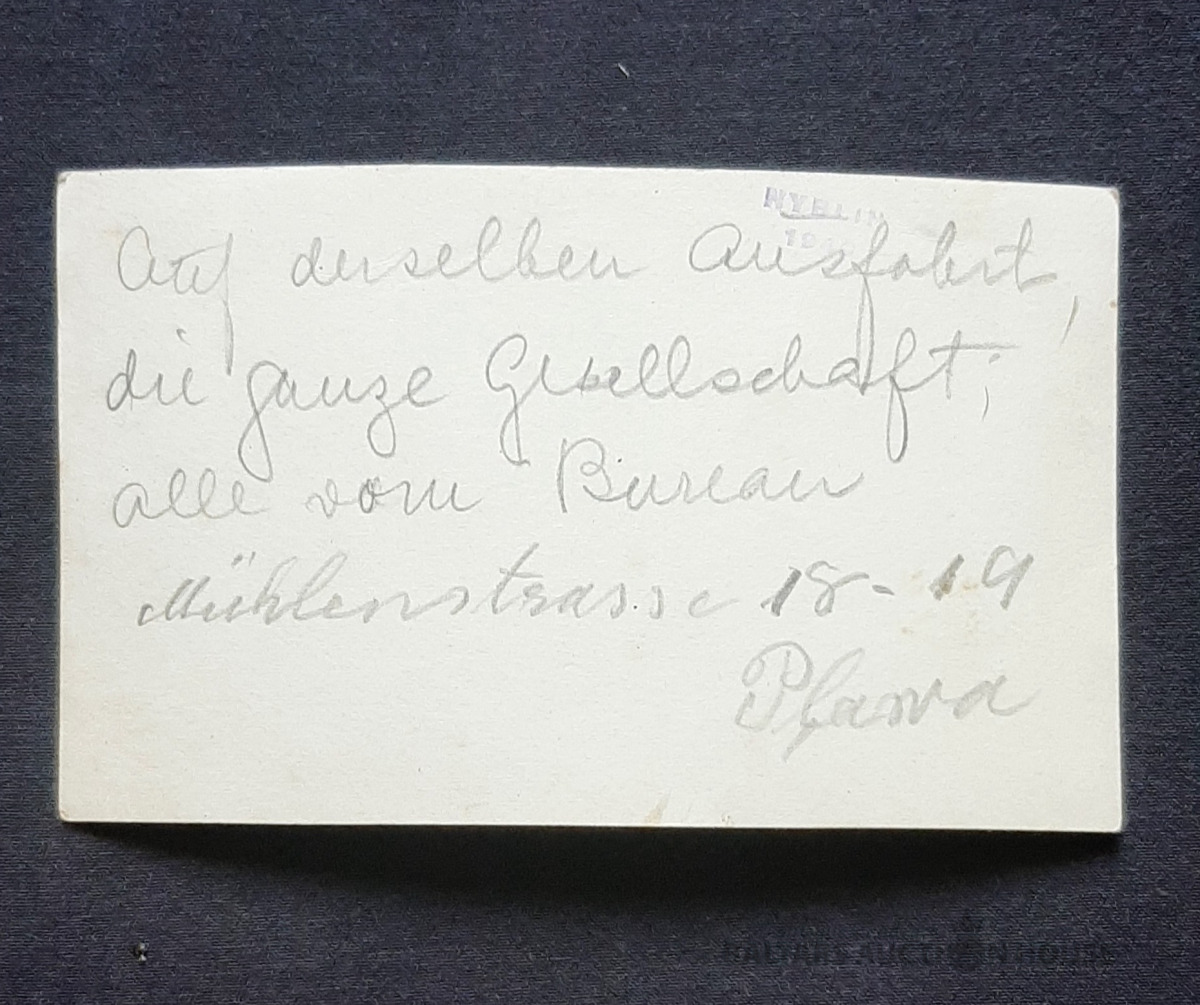 Auf derselben Ausfahrt,
die ganze Gesellschaft;
alle vom Bureau
Mühlenstrasse 18-19